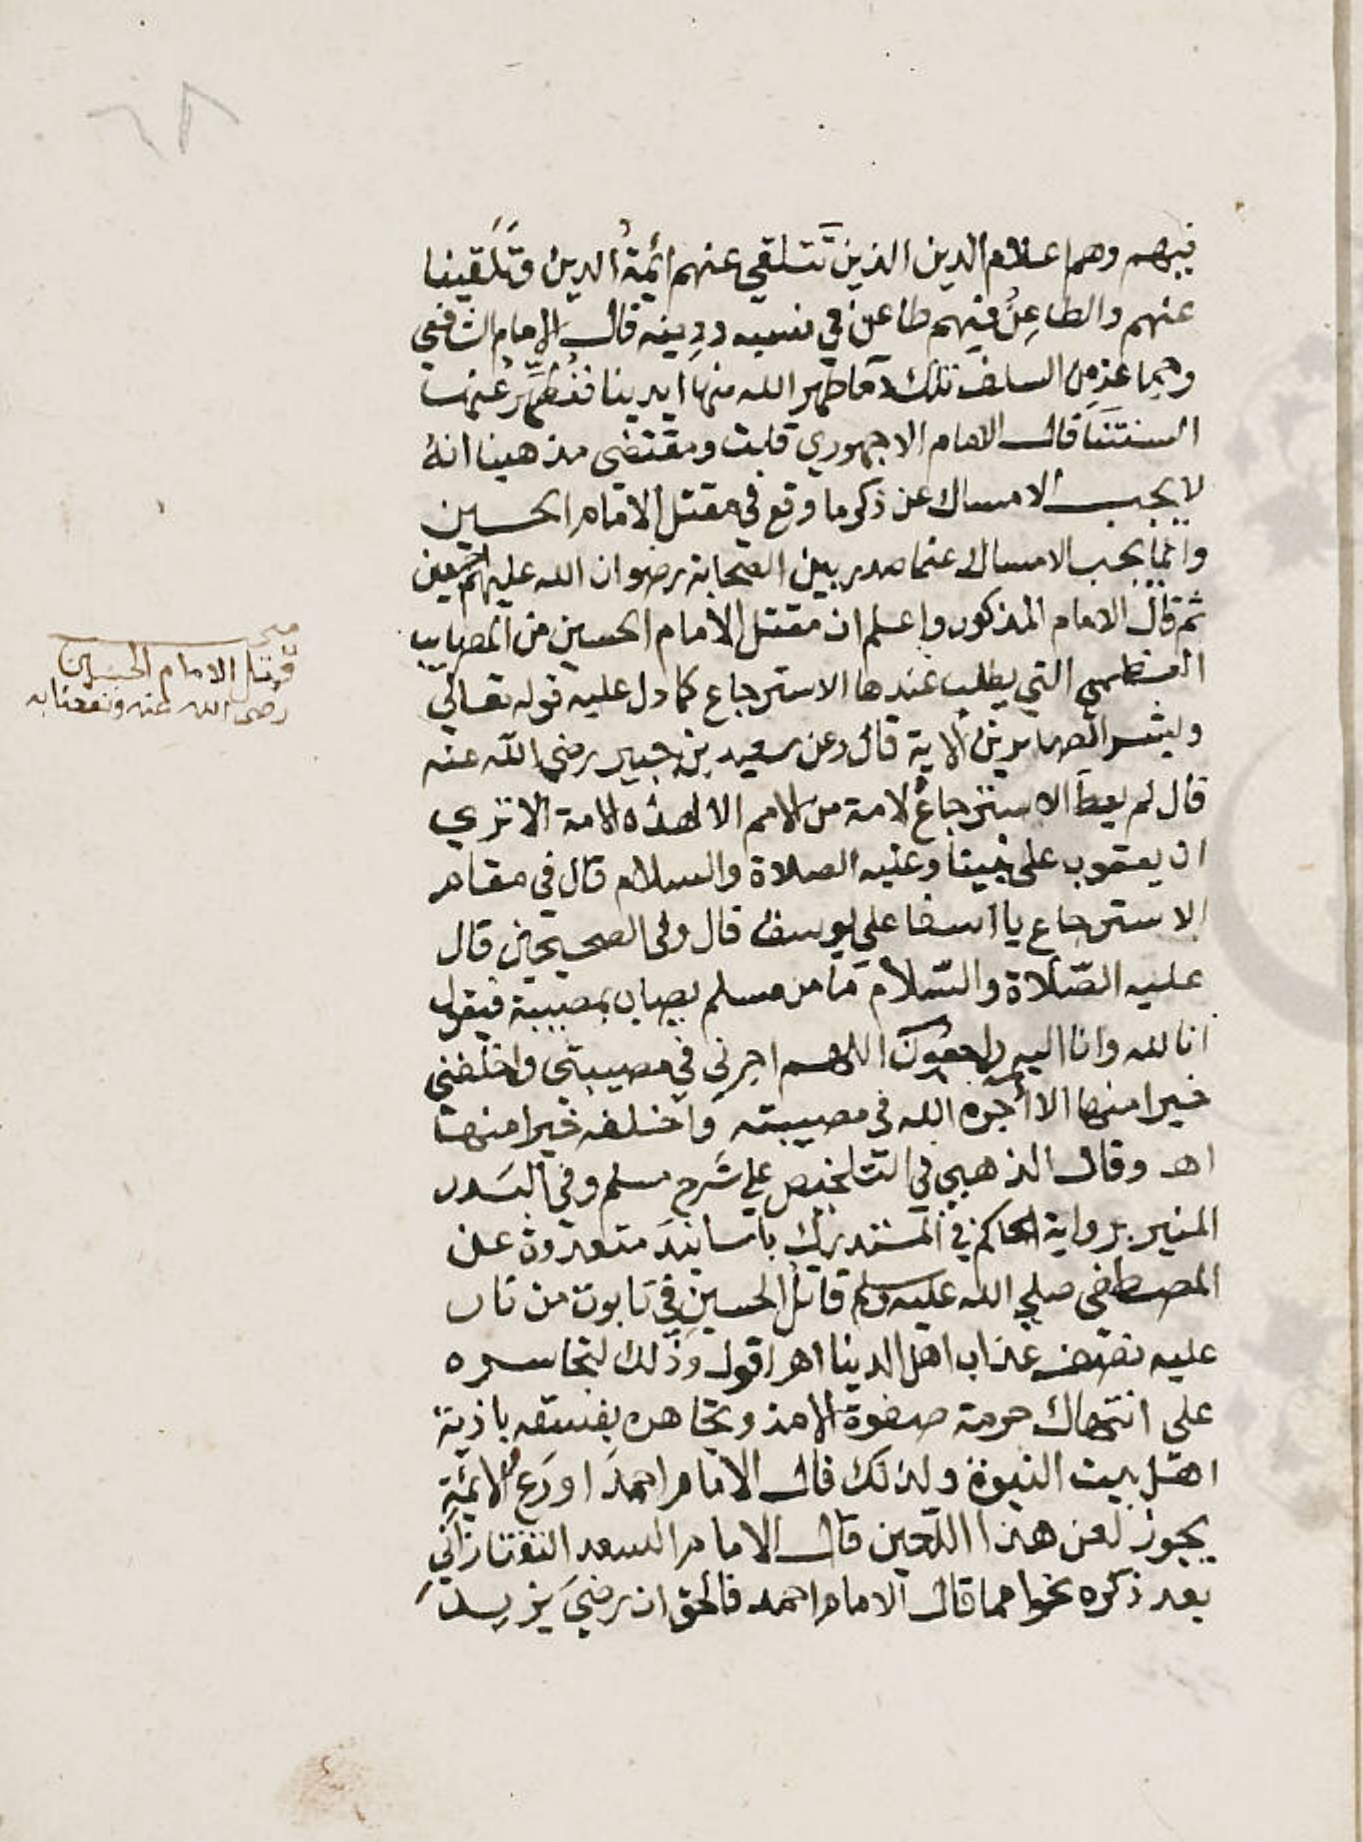 ٦٨
فيهم وهم اعلام الدين الذين تتلقى عنهم ائمة الدين وتلقينا
عنهم والطاعن فيهم طاعن في نفسه ودينه قال الامام الشافعي
وجماعة من السلف تلك دما طهر الله منها ايدينا فنطهر عنها
السنتنا قال الامام الاجهوري قلت ومقتضى مذهبنا انه
لا يجب الامساك عن ذكر ما وقع في مقتل الامام الحسين
وانما يجب الامساك عما صدر بين الصحابة رضوان الله عليهم اجمعين
ثم قال الامام المذكور واعلم ان مقتل الامام الحسين من المصايب
العظمى التي يطلب عندها الاسترجاع كما دل عليه قوله تعالى
وبشر الصابرين الاية قال وعن سعيد بن جبير رضي الله عنه
قال لم يعط الاسترجاع لامة من الامم الا لهذه الامة الا ترى
ان يعقوب على نبينا وعليه الصلاة والسلام قال في مقام
الاسترجاع يا اسفا على يوسف قال وفي الصحيحين قال
عليه الصلاة والسلام ما من مسلم يصاب بمصيبة فيقول
انا لله وانا اليه راجعون اللهم اجرني في مصيبتي واخلفني
خيرا منها الا اجره الله في مصيبته واخلفه خيرا منها
اهـ وقال الذهبي في التلخيص على شرح مسلم وفي البدر
المنير برواية الحاكم في المستدرك باسانيد متعددة عن
المصطفى صلى الله عليه وسلم قاتل الحسين في تابوت من نار
عليه نصف عذاب اهل الدينا اهـ اقول وذلك لتجاسره
على انتهاك حرمة صفوة الامة وتجاهره بفسقه باذية
اهل بيت النبوة ولذلك قال الامام احمد اورع الائمة
يجوز لعن هذا اللعين قال الامام السعد التفتازاني
بعد ذكره نحوا مما قال الامام احمد فالحق ان رضى يزيد
قتل الامام الحسين
رضى الله عنه ونفعنا به